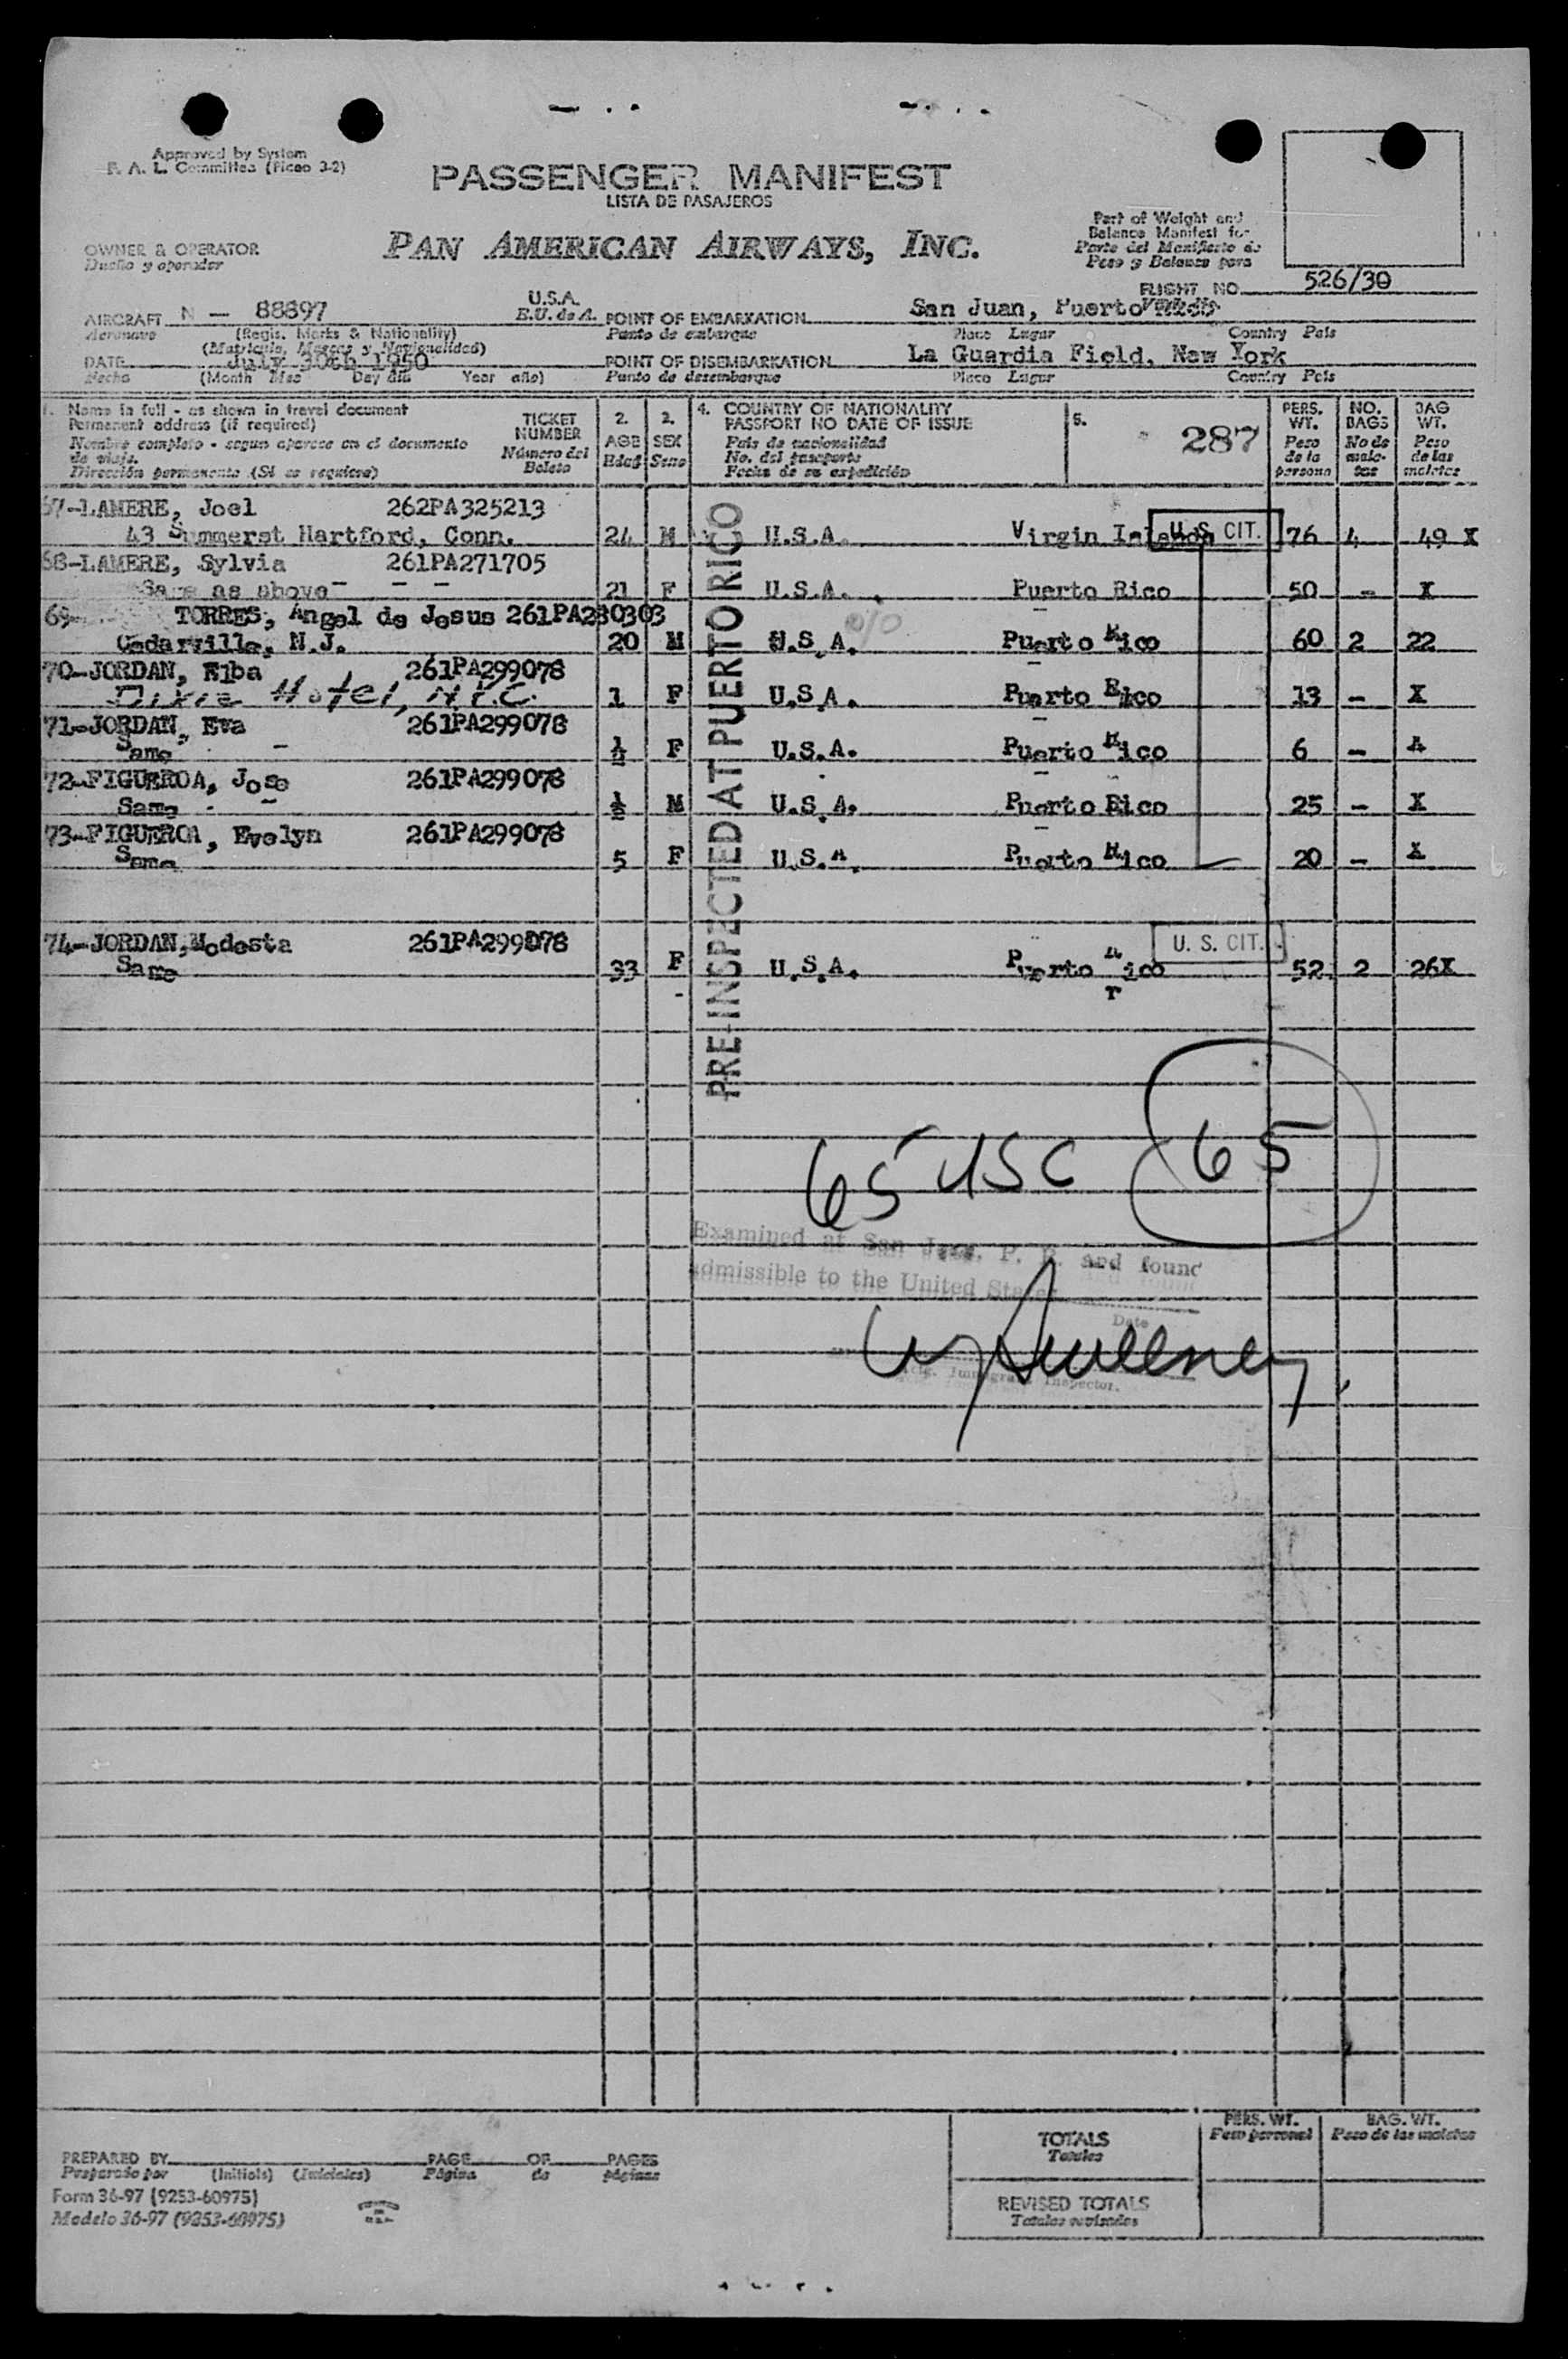 Approved by System
F. A. L. Committee (Picao 3-2)
PASSENGER MANIFEST
LISTA DE PASAJEROS
Part of Weight and
Balance Manifest for
Parte del Manifiesto de
Peso y Balance para
OWNER & OPERATOR
Dueño y operador
PAN AMERICAN AIRWAYS, INC.
FLIGHT NO. 526/30
AIRCRAFT N - 88897 U.S.A. POINT OF EMBARKATION San Juan, Puerto
Aeronave (Regis. Marks & Nationality) E.U. de A. Punto de embarque Place Lugar Country País
(Matrícula, Marcas y Nacionalidad)
DATE July 30th 1950 POINT OF DISEMBARKATION La Guardia Field, New York
Fecha (Month Mes Day día Year año) Punto de desembarque Place Lugar Country País
1. Name in full - as shown in travel document
Permanent address (if required)
Nombre completo - segun aparece en el documento
de viaje.
Dirección permanente (Si es requiere)
TICKET
NUMBER
Número del
Boleto
2.
AGE
Edad
3.
SEX
Sexo
4. COUNTRY OF NATIONALITY
PASSPORT NO DATE OF ISSUE
País de nacionalidad
No. del pasaporte
Fecha de su expedición
5.
287
PERS.
WT.
Peso
de la
persona
NO.
BAGS
No de
male-
tas
BAG
WT.
Peso
de las
maletas
67-LAMERE, Joel 262PA325213
43 Summerst Hartford, Conn. 24 M U.S.A. Virgin U. S. CIT. 76 4 49 X
68-LAMERE, Sylvia 261PA271705
Same as above - - - 21 F U.S.A. Puerto Rico 50 - X
69- TORRES, Angel de Jesus 261PA280303
Cedarville, N.J. 20 M U.S.A. Puerto Rico 60 2 22
70-JORDAN, Elba 261PA299078
Dixie Hotel, N.Y.C. 1 F U.S.A. Puerto Rico 13 - X
71-JORDAN, Eva 261PA299078
Same - ½ F U.S.A. Puerto Rico 6 - X
72-FIGUEROA, Jose 261PA299078
Same - ½ M U.S.A. Puerto Rico 25 - X
73-FIGUEROA, Evelyn 261PA299078
Same 5 F U.S.A. Puerto Rico 20 - X
74-JORDAN, Modesta 261PA299078
Same 33 F U.S.A. Puerto Rico U. S. CIT. 52 2 26X
r
PRE-INSPECTED AT PUERTO RICO
65 USC 65
Examined at San Juan, P. R. and found
admissible to the United States
Date
Immigrant Inspector.
TOTALS
Totales
PERS. WT.
Peso personal
BAG. WT.
Peso de las maletas
PREPARED BY PAGE OF PAGES
Preparado por (Initials) (Iniciales) Página de páginas
REVISED TOTALS
Totales revisados
Form 36-97 (9253-60975)
Modelo 36-97 (9253-60975)